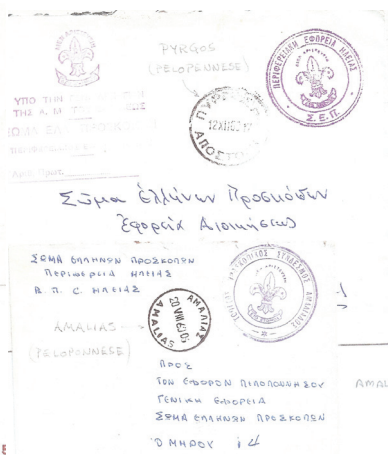 PYRGOS
(PELOPENNESE)
ΠΕΡΙΦΕΡΕΙΑΚΗ ΕΦΟΡΕΙΑ ΗΛΕΙΑΣ
Σ.Ε.Π.
ΥΠΟ ΤΗΝ
ΤΗΣ Α. Μ. ΤΟΥ
ΣΩΜΑ ΕΛΛ. ΠΡΟΣΚΟΠΩΝ
ΠΥΡΓΟΣ
ΑΠΟΣΤΟΛΗ
Σῶμα Ἑλλήνων Προσκόπων
Ἐφορεία Διοικήσεως
ΣΩΜΑ ΕΛΛΗΝΩΝ ΠΡΟΣΚΟΠΩΝ
ΠΕΡΙΦΕΡΕΙΑ ΗΛΕΙΑΣ
Β. Π. Σ. ΗΛΕΙΑΣ
AMALIAS
(PELOPONNESE)
ΑΜΑΛΙΑΣ
20 VIII 63 05
AMALIAS
ΠΡΟΣ
ΤΟΝ ΕΦΟΡΟΝ ΠΕΛΟΠΟΝΝΗΣΟΥ
ΓΕΝΙΚΗ ΕΦΟΡΕΙΑ
ΣΩΜΑ ΕΛΛΗΝΩΝ ΠΡΟΣΚΟΠΩΝ
ΟΜΗΡΟΥ 14
AMAL